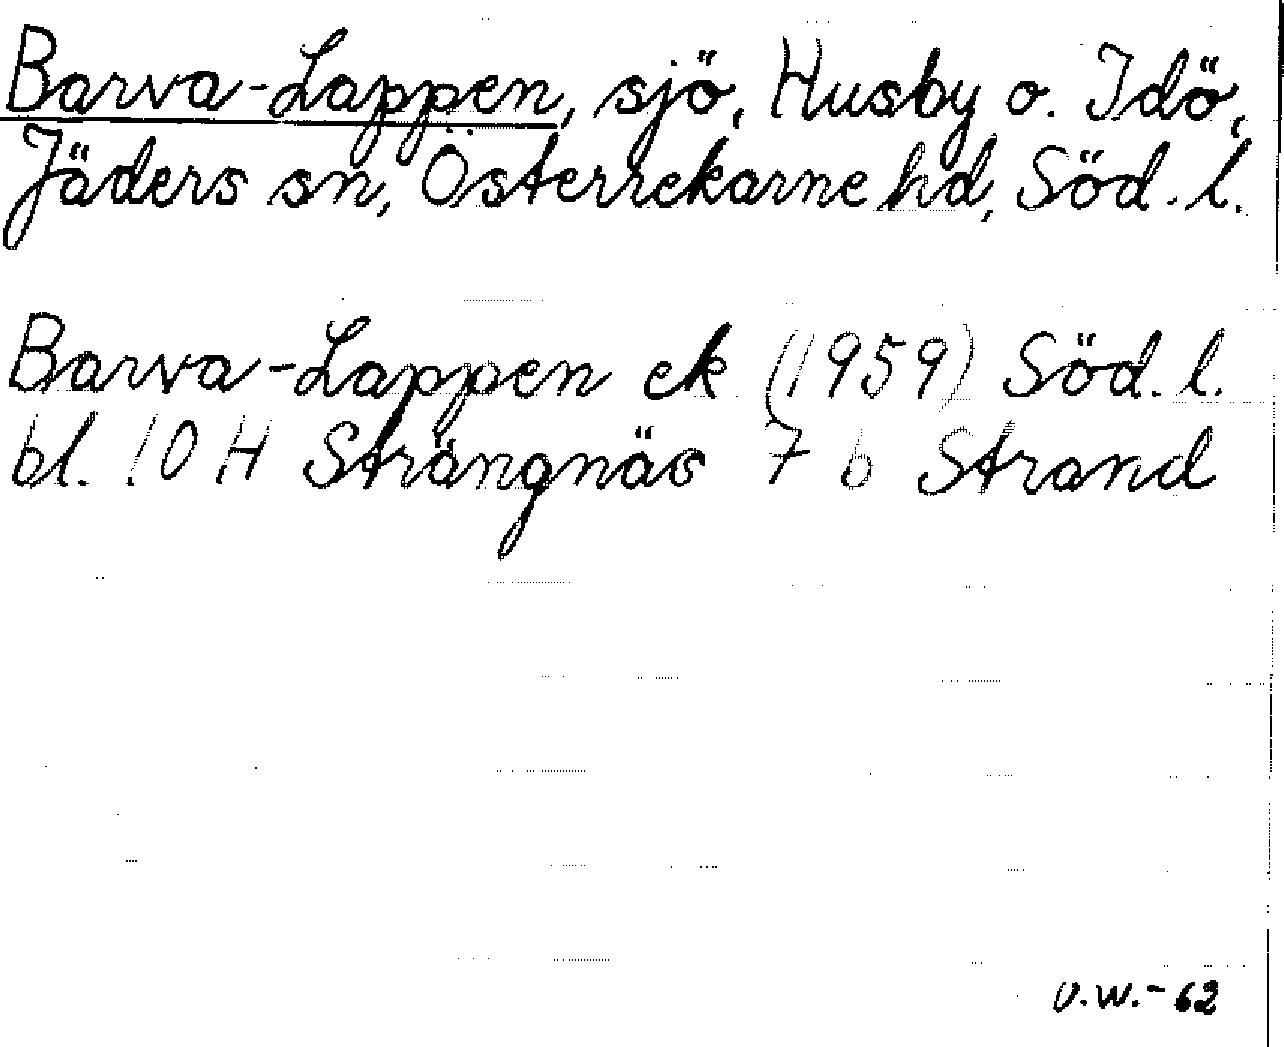 Barva-Lappen, sjö, Husby o. Idö,
Jäders sn, Österrekarne hd, Söd. l.
Barva-Lappen ek (1959) Söd. l.
bl. 10 H Strängnäs 7 b Strand
U.W.-62